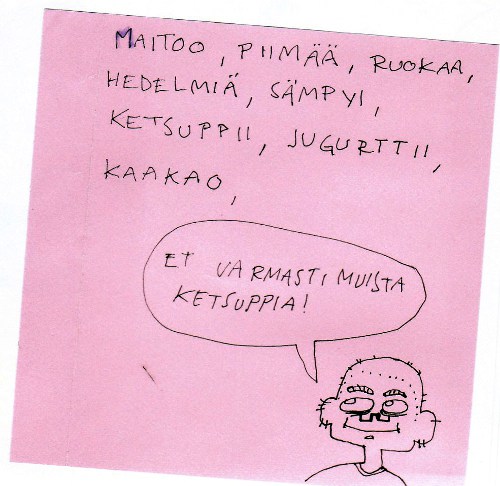 MAITOO, PIIMÄÄ, RUOKAA,
HEDELMIÄ, SÄMPYI,
KETSUPPII, JUGURTTII,
KAAKAO,
ET VARMASTI MUISTA
KETSUPPIA!